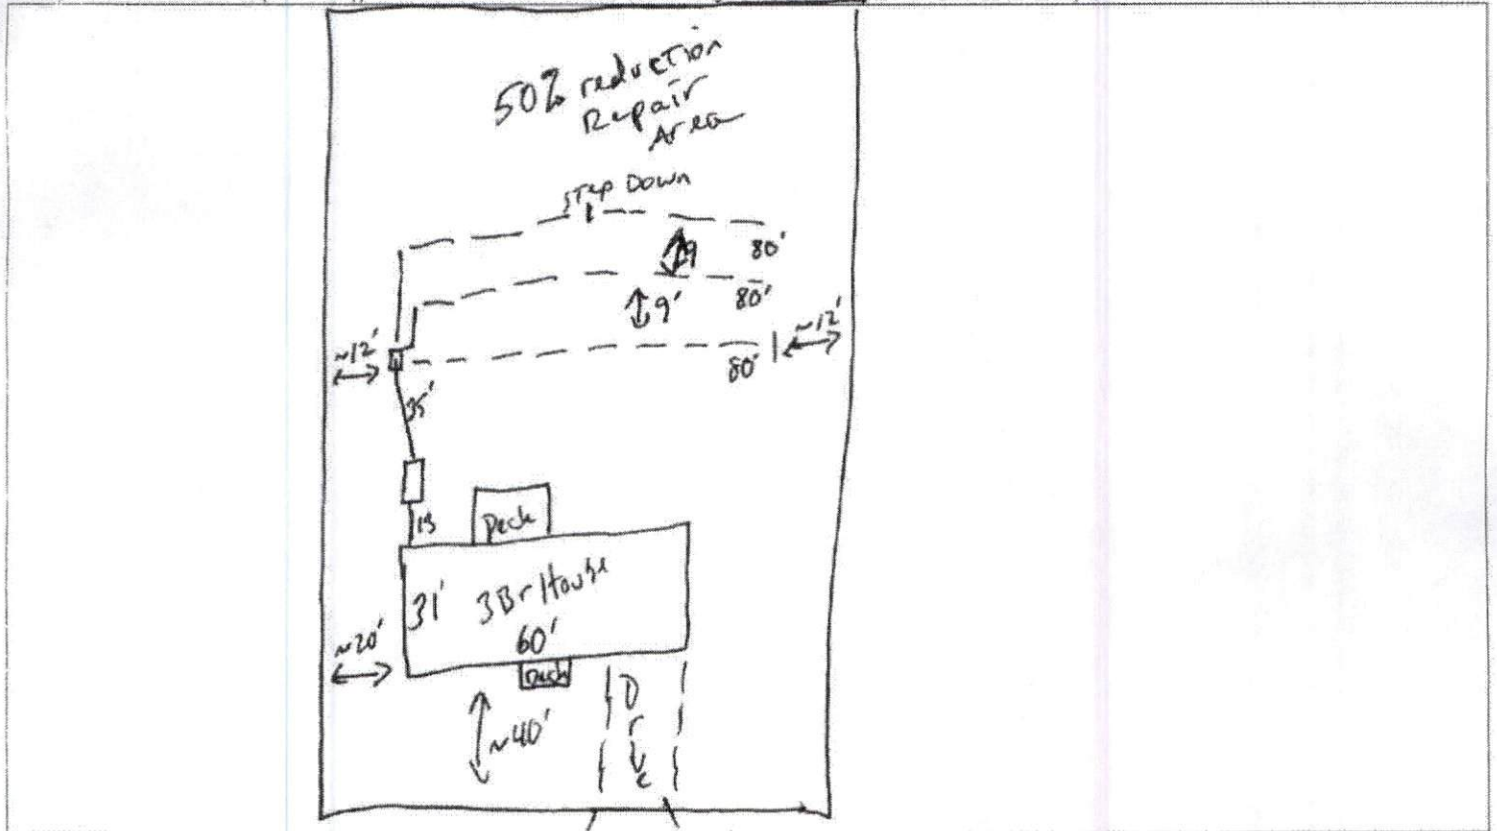 50% reduction
Repair
Area
Step Down
80'
9
80'
9'
~12'
~12'
80'
35'
Deck
31'
3Br House
60'
~20'
Deck
~40'
Drive